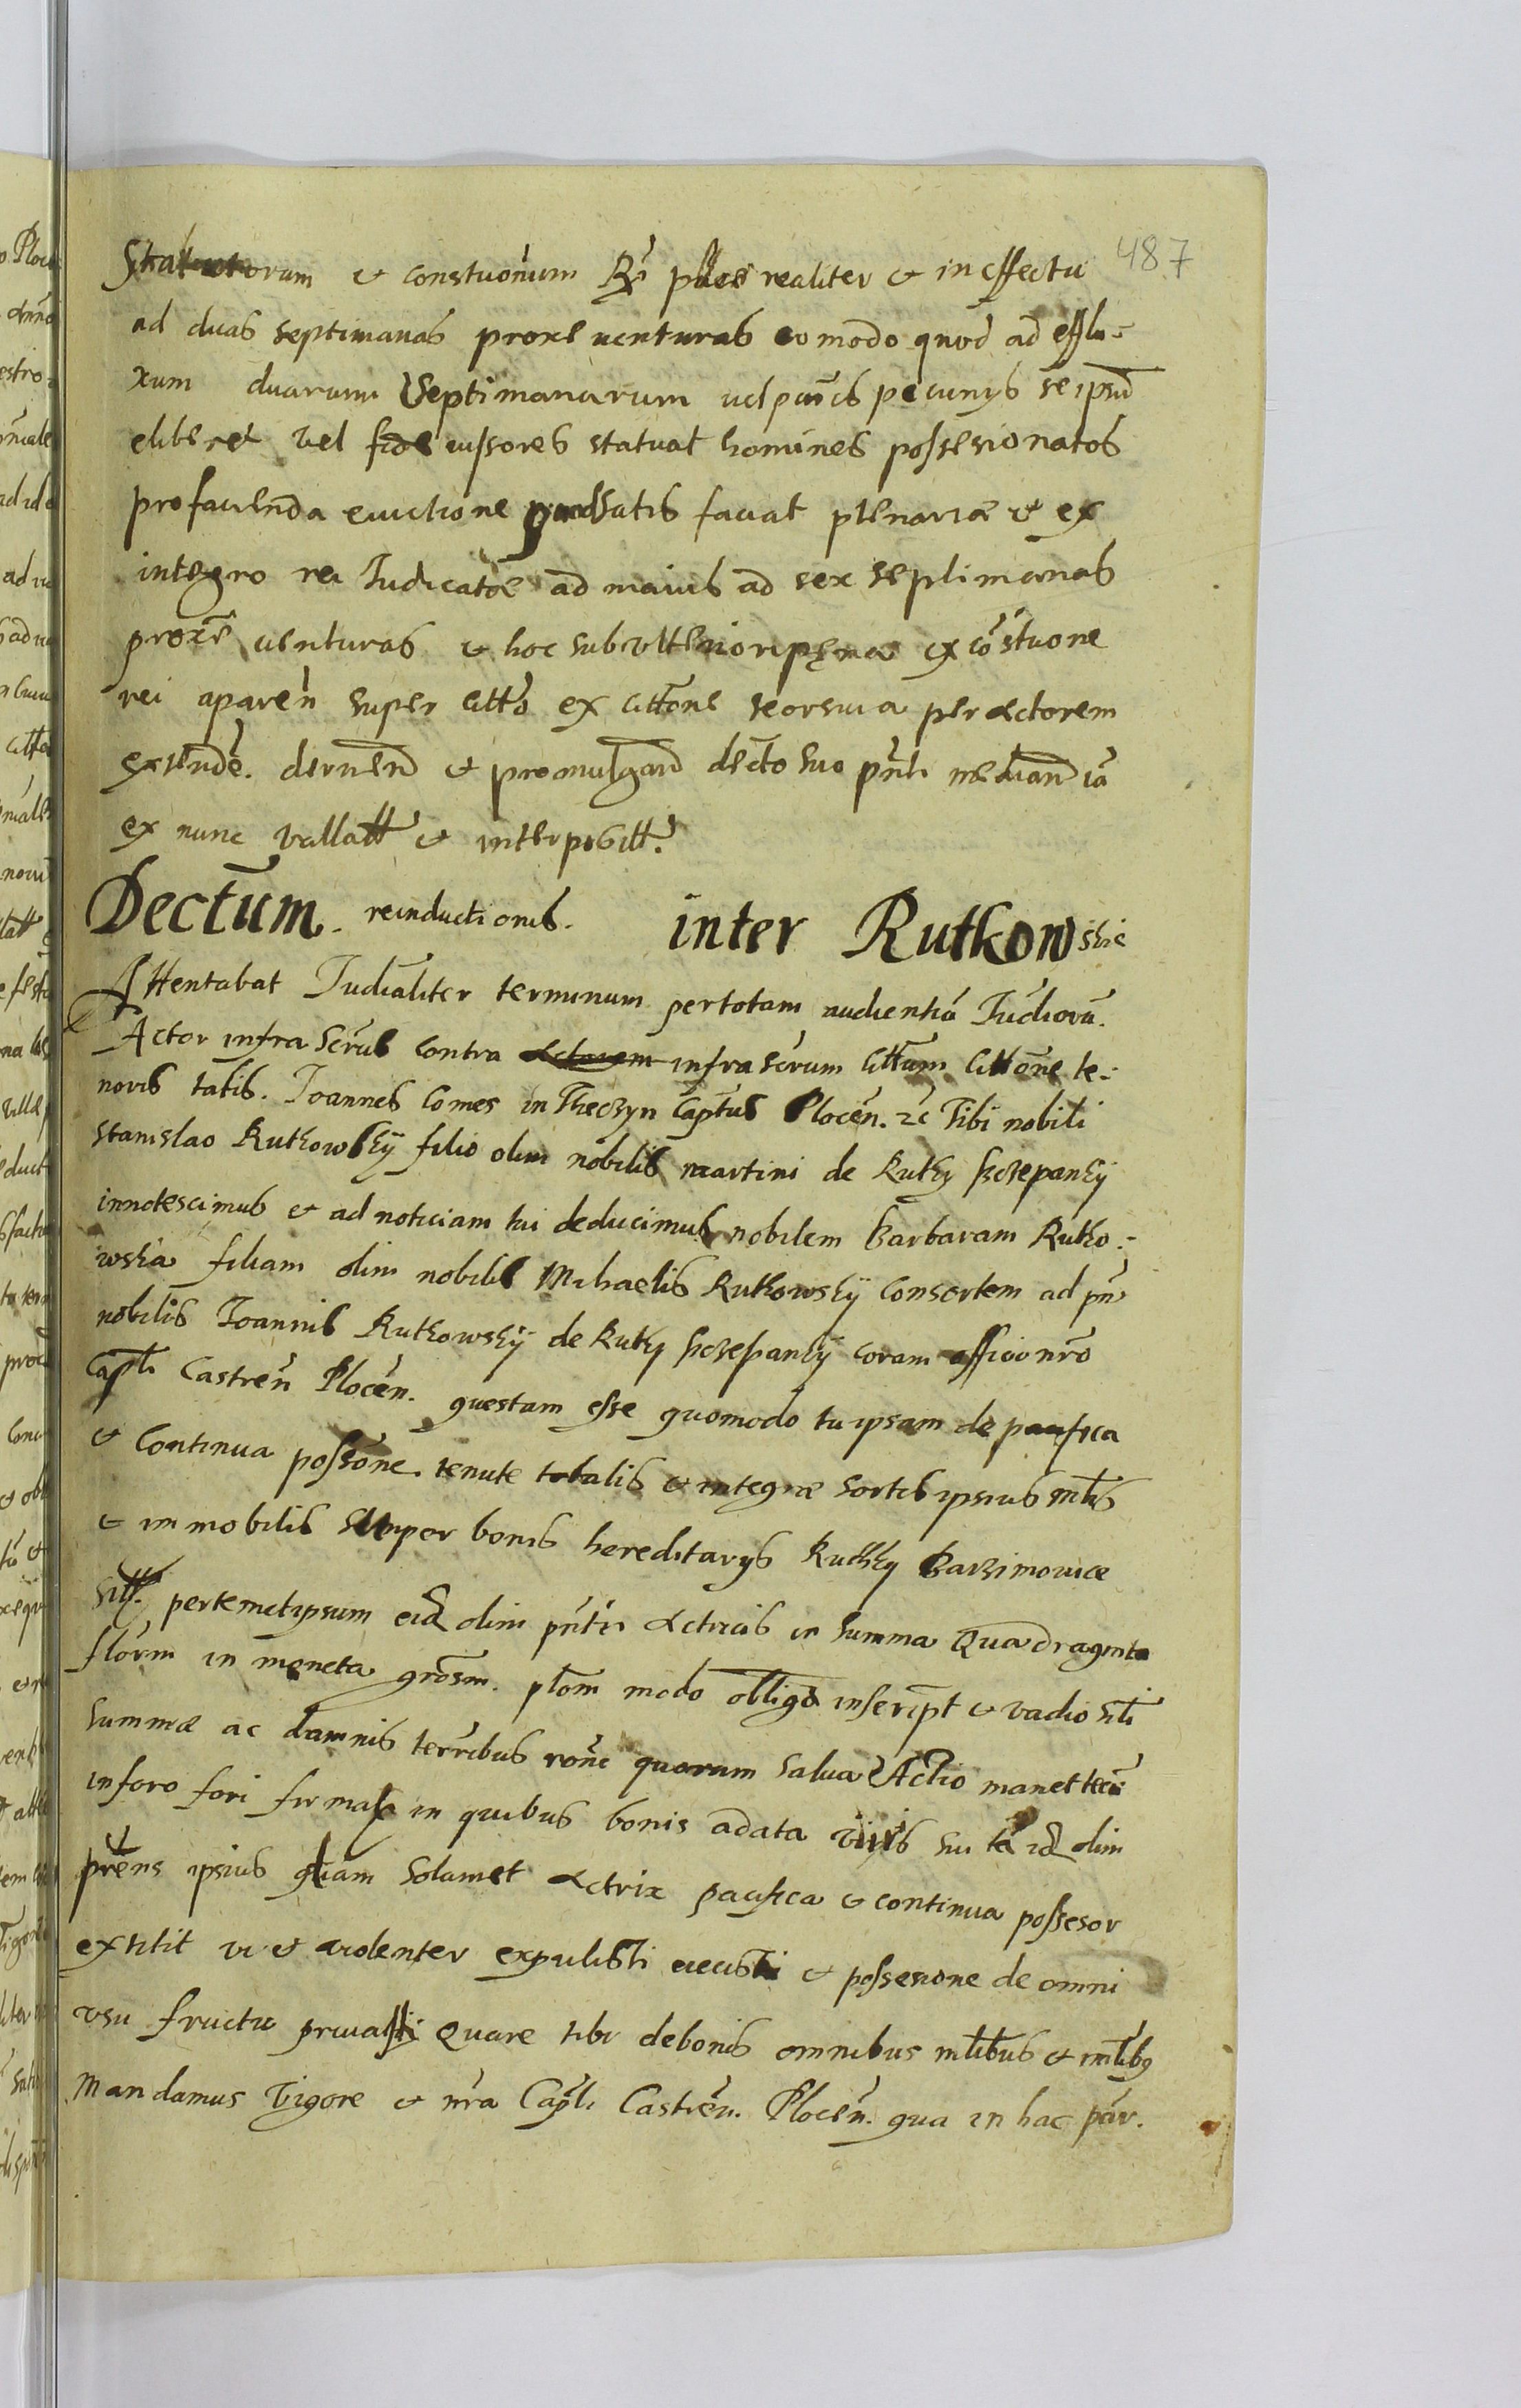 487
Statutorum & constuonum Rí realiter & in effectu
ad duas septimanas proxe uenturas eo modo quod ad efflu-
xum duarum Septimanarum uel pecunys se ipsũ
eliberet vel fideiussores statuat homines possesionatos
pro facienda euictione satis faciat plenariæ & ex
integro rei Iudicatæ ad maius ad sex septimanas
proxe uenturas & hoc sub ulteriori pęna ex cõstuone
rei aparen super citto ex cittone seorsiua per Actorem
extende. dernend & promulgand decto suo pnti mediand ia
ex nunc vallatt & interpositt.
Dectum. reinductionis. inter Rutkowskie
Attentabat Iudialiter terminum per totam audientiá Iudiorú.
Actor infra scrus contra infra scrum cittum cittone te-
noris talis. Ioannes Comes in Theczyn Captus Plocen. &c Tibi nobili
Stanislao Rutkowskÿ filio olim nobilis martini de Rutky sczepankÿ
innotescimus & ad noticiam tui deducimus nobilem Barbaram Rutko-
wska filiam olim nobilis Mihaelis Rutkowskÿ Consortem ad pns
nobilis Ioannis Rutkowskÿ de Rutky sczepankÿ coram officio nro
Capli Castren Plocen. questam esse quomodo tu ipsam de pacifica
& Continua possone tenute totalis & integræ sortis ipsius mlis
& immobilis super bonis hereditarys Rutky Barzimowice
sitt. per temetipsum eid olim pnti Actricis in summa Quadraginta
florm in moneta grosm. plom modo obligo inscript & vadio sili
summæ ac damnis terribus rone quorum salua Actio manet tecũ
in foro fori firmata in quibus bonis a data ta id olim
prens ipsius quam solamet Actrix pacifica & continua possesor
extitit vi & violenter expulisti eiecisti & possesione de omni
vsu fructu priuasti Quare tibi de bonis omnibus mlibus & imlibus
Mandamus Vigore & nra Capli Castren. Plocen. qua in hac par.